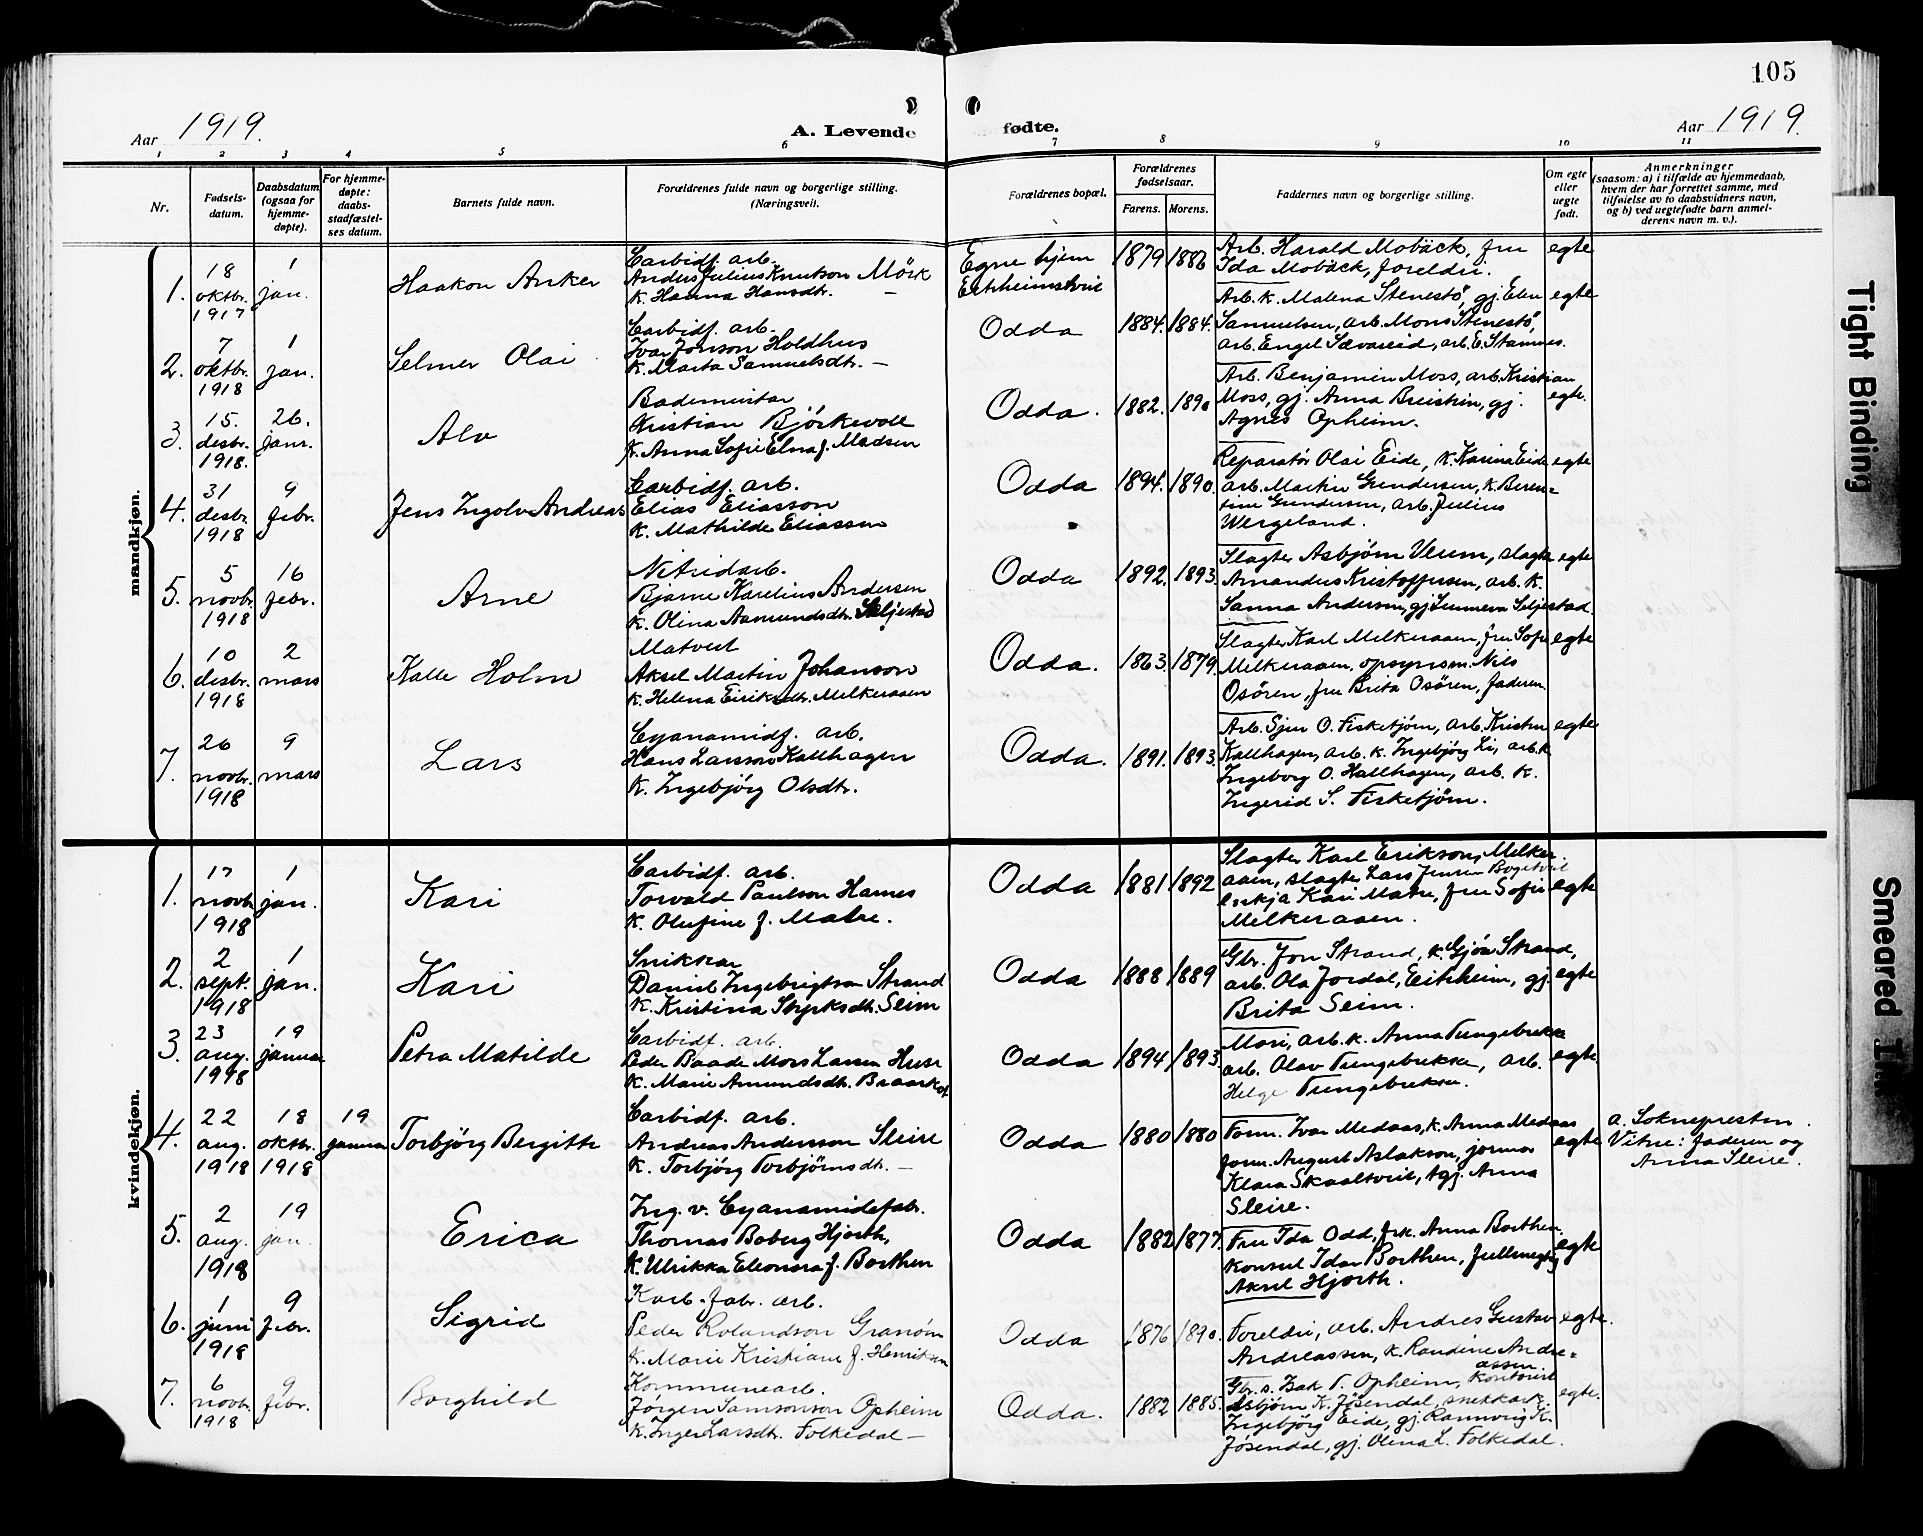 105
Aar 1919.
A. Levende fødte.
Aar 1919.
1 2 3 4 5 6 7 8 9 10 11
Nr.
Fødsels-
datum.
Daabsdatum
(ogsaa for
hjemme-
døpte).
For hjemme-
døpte:
daabs-
stadfæstel-
ses datum.
Barnets fulde navn.
Forældrenes fulde navn og borgerlige stilling.
(Næringsvei).
Forældrenes bopæl.
Forældrenes
fødselsaar.
Farens. Morens.
Faddernes navn og borgerlige stilling.
Om egte
eller
uegte
født.
Anmerkninger
(saasom: a) i tilfælde av hjemmedaab,
hvem der har forrettet samme, med
tilføielse av to daabsvidners navn,
og b) ved uegtefødte barn anmel-
derens navn m. v.).
mandkjøn.
1.
18
oktbr.
1917
1
jan.
Haakon Anker
Carbidf. arb.
Andus Julius Knutson Mörk
k. Hanna Hansdtr. —
Egne hjem
Eitrheimstveit
1879 1886
Arb. Harald Mobäck, fru
Ida Mobäck, foreldri.
egte
2.
7
oktbr.
1918
1
jan.
Selmer Olai
Carbidf. arb.
Ivar Jonson Holdhus
k. Marta Samuelsdtr. —
Odda
1884. 1884.
Arb. k. Malena Stenestö, gj. Elen
Samuelsen, arb. Mons Stenestö,
arb. Engel Sævareid, arb. E. Stamnes.
egte
3.
15.
desbr.
1918.
26.
janr.
Alv
Bademester
Kristian Björkevoll
k. Anna Sofie Elna f. Madsen
Odda.
1882. 1890
Arb. Benjamin Moss, arb. Kristian
Moss, gj. Anna Breistein, gj.
Agnes Opheim.
egte.
4.
31
desbr.
1918
9
febr.
Jens Ingolv Andreas
Carbidf. arb.
Elias Eliasson
k. Mathilde Eliassen
Odda
1894. 1890.
Reparatör Olai Eide, k. Karina Eide
arb. Martin Gundersen, k. Beren=
tine Gundersen, arb. Julius
Wergeland.
egte
5.
5
novbr.
1918
16
febr.
Arne
Nitridarb.
Bjarne Karelius Andersen
k. Olina Aamundsdtr. Seljestad
Odda
1892. 1893.
Slagter Asbjörn Ulium, slagter
Amandus Kristoffersen, arb. k.
Sanna Andersen, gj. Sunneva Seljestad.
egte
6.
10
desbr.
1918
2
mars
Kalle Holm
Matvert
Aksel Martin Johanson
k. Helena Eiriksdtr. Melkeraaen
Odda.
1863. 1879.
Slagter Karl Melkeraaen, fru Sofie
Melkeraaen, opsynsm. Nils
Osören, fru Brita Osören, faderen.
egte
7.
26
novbr.
1918
9
mars
Lars
Cyanamidf. arb.
Hans Larsson Kallhagen
k. Ingebjörg Olsdtr.
Odda.
1891. 1893.
Arb. Sjur O. Fisketjörn, arb. Kristen
Kallhagen, arb. k. Ingebjörg Li, arb. k.
Ingeborg O. Hallhagen, arb. k.
Ingerid S. Fisketjörn.
egte
kvindekjøn.
1.
17
novbr.
1918
1
jan.
Kari
Carbidf. arb.
Torvald Paulson Hames
k. Olufine f. Matre.
Odda
1881 1892
Slagter Karl Erikson, Melker-
aaen, slagter Lars Jensen Bogetveit
enkja Kari Matre, fru Sofie
Melkeraaen.
egte
2.
2
sept.
1918
1
jan.
Kari
Snikkar
Daniel Ingebrigtson Strand
k. Kristina Styrksdtr. Seim
Odda
1888 1889
Gbr. Jon Strand, k. Gjöa Strand,
arb. Ola Jordal, Eitrheim, gj.
Brita Seim.
egte
3.
23
aug.
1918
19
januar
Petra Matilde
Carbidf. arb.
Peder Baade Mors Larsen Huse
k. Marie Amundsdtr. Braarkot
Odda
1894 1893
Mori, arb. k. Anna Tungebrekke
arb. Olav Tungebrekke, arb.
Helge Tungebrekke.
egte
4.
22
aug.
1918
18
oktbr.
1918
19
januar
Torbjörg Bergitte
Carbidf. arb.
Andreas Anderson Sleire
k. Torbjörg Torbjörnsdtr. —
Odda
1880 1880
Form. Ivar Medaas, k. Anna Medaas
form. August Aslakson, jormor
Klara Skaaltveit, tgj. Anna
Sleire.
egte
a. Sokneprestin.
Vitne: faderen og
Anna Sleire.
5.
2
aug.
1918
19
jan.
Erica
Ing. v. Cyanamidfabr.
Thomas Boberg Hjorth,
k. Ulrikka Eleonora f. Borthen
Odda
1882 1877.
Fru Ida Odd, frk. Anna Borthen
konsul Idar Borthen, fullmegtig
Aksel Hjorth.
egte
6.
1
juni
1918
9
febr.
Sigrid
Karb. fabr. arb.
Peder Rolandson Granöm
k. Marie Kristiane f. Henriksen
Odda
1876 1890.
Foreldri, arb. Andres Gustav
Andreassen, k. Randine Andre=
assen.
egte.
7.
6
novbr.
1918
9
febr.
Borghild
Kommunearb.
Jørgen Samsonson Opheim
k. Inger Larsdtr. Folkedal —
Odda.
1882 1885.
Gbr. s. Isak T. Opheim, kontorist
Asbjörn K. Jösendal, snekkark.
Ingebjörg Eide, gj. Rannveig K.
Jösendal, gj. Olina L. Folkedal.
egte.
Tight Binding
Smeared